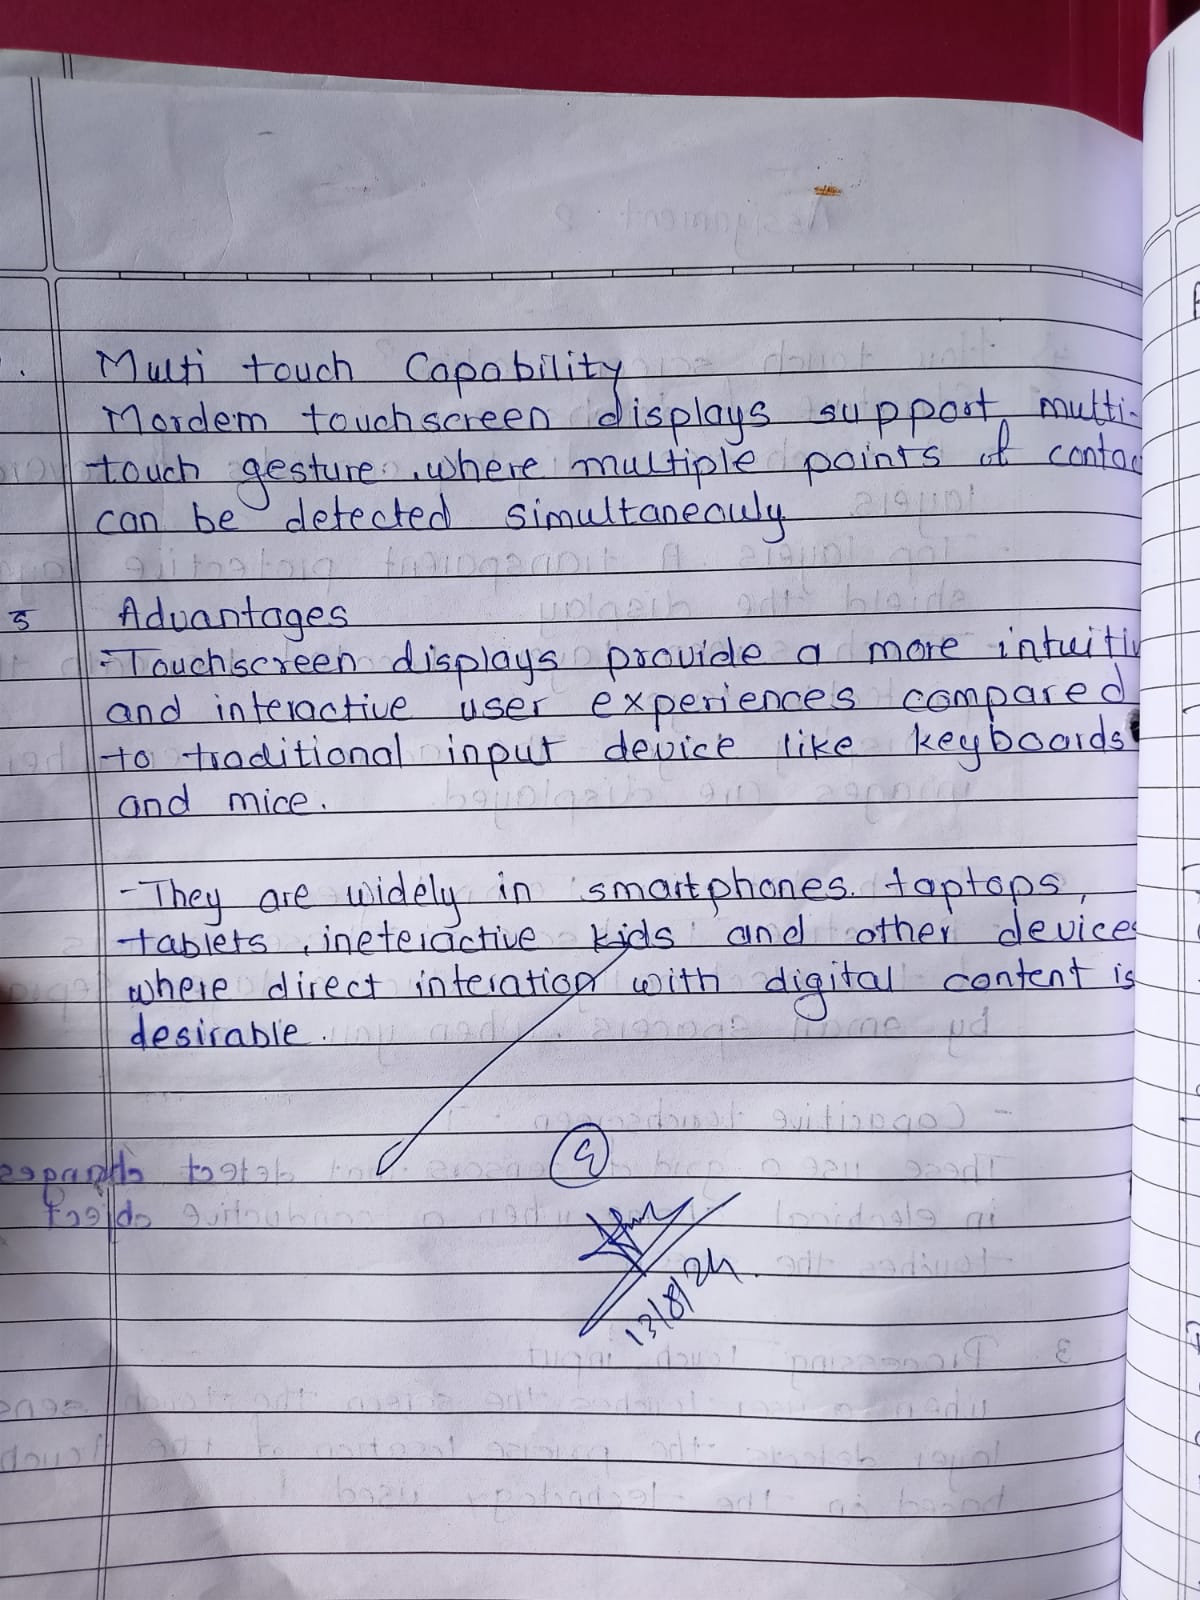 Multi touch Capability
Mordem touchscreen displays support multi-
touch gesture, where multiple points of contac
can be detected simultaneouly
5 Advantages
-Touchscreen displays provide a more intuitiv
and interactive user experiences compared
to traditional input device like keyboards
and mice.
-They are widely in smartphones. taptops,
tablets, ineteractive kids and other device
where direct interation with digital content is
desirable.
13/8/24.